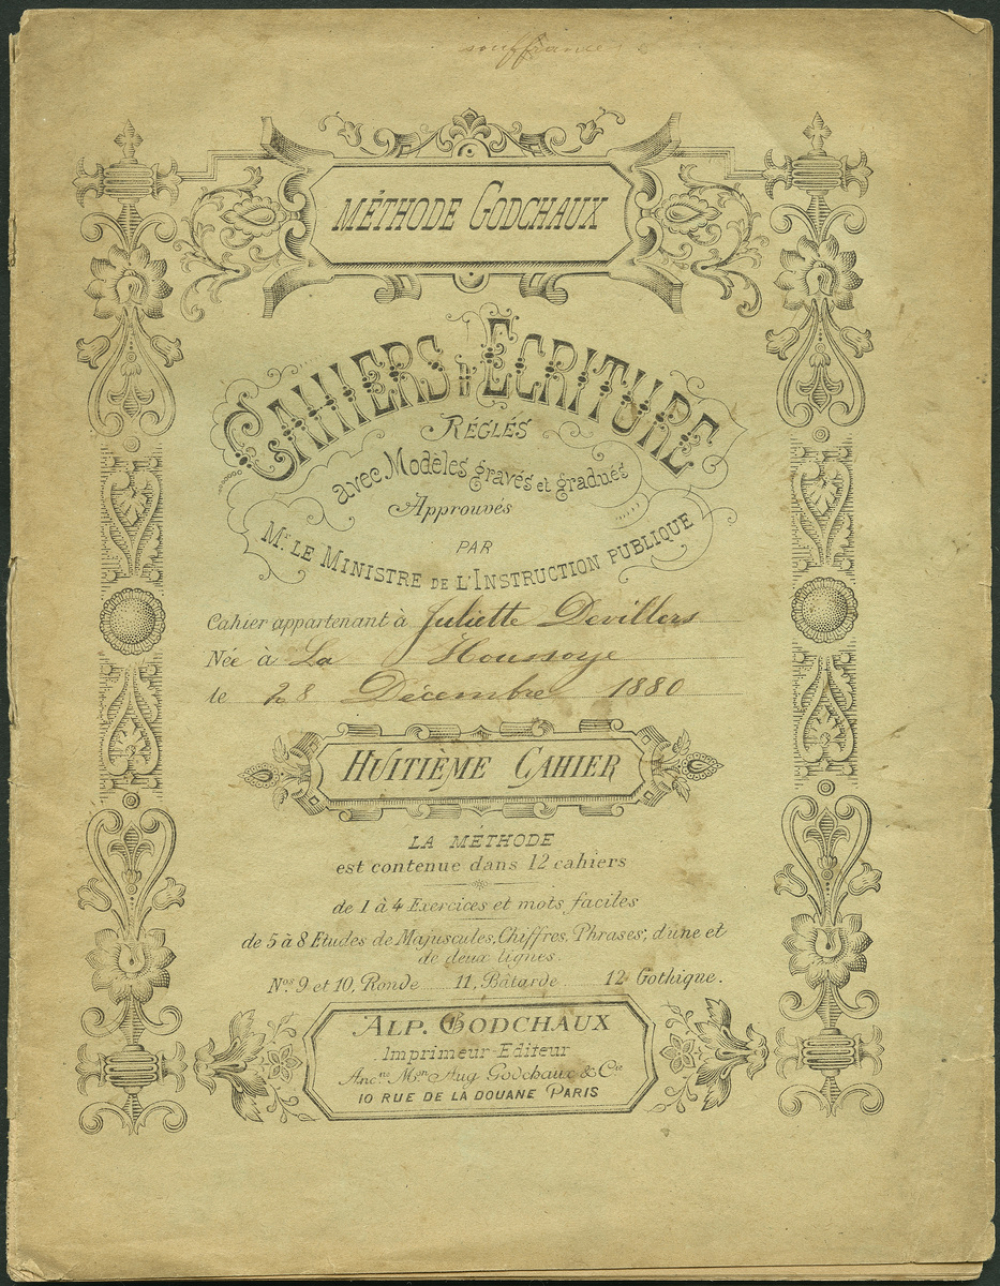 souffrance
MÉTHODE GODCHAUX
CAHIERS D'ÉCRITURE
RÉGLÉS
avec Modèles gravés et gradués
Approuvés
PAR
Mr. LE MINISTRE DE L'INSTRUCTION PUBLIQUE
Cahier appartenant à Juliette Devillers
Née à La Houssoye
le 28 Décembre 1880
HUITIÈME CAHIER
LA MÉTHODE
est contenue dans 12 cahiers
de 1 à 4 Exercices et mots faciles
de 5 à 8 Etudes de Majuscules, Chiffres, Phrases, d'une et
de deux lignes.
Nos. 9 et 10, Ronde 11, Bâtarde 12 Gothique.
ALP. GODCHAUX
Imprimeur-Editeur
Ancne Mson Aug Godchaux & Cie
10 RUE DE LA DOUANE PARIS